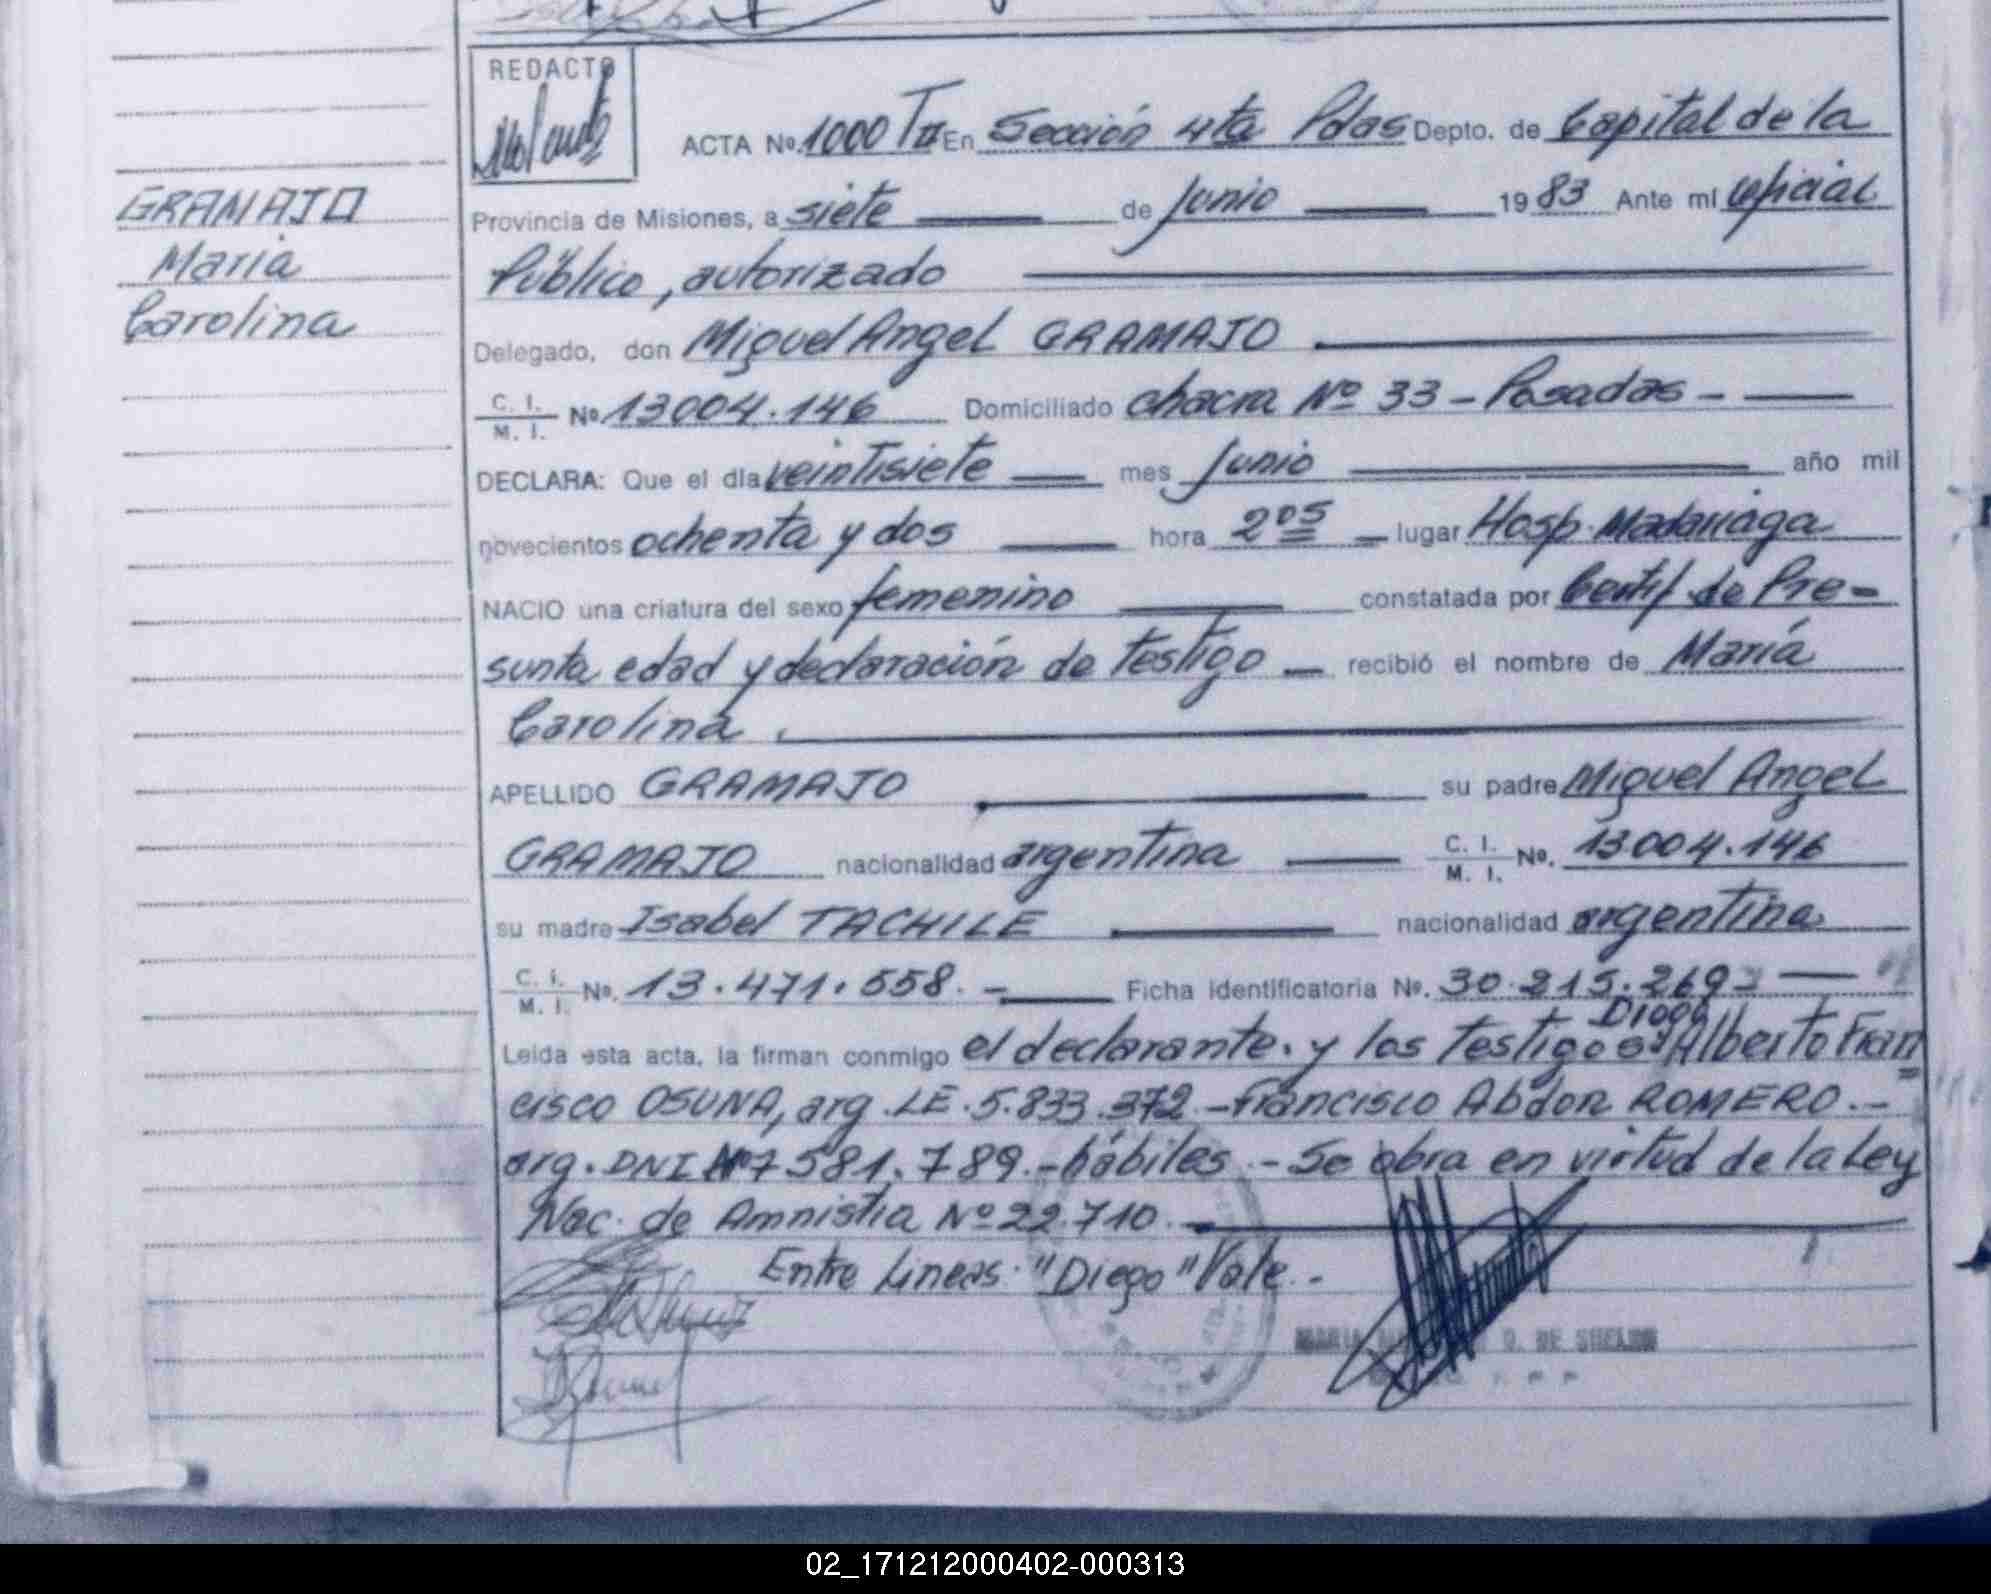 REDACTO
ACTA No. 1000 TII En Sección 4ta Pdas Depto. de Capital de la
GRAMAJO
María
Carolina
Provincia de Misiones, a siete de junio 1983 Ante mí oficial
Público, autorizado
Delegado, don Miguel Angel GRAMAJO
C. I. M. I. No. 13004.146 Domiciliado chacra Nº 33 - Posadas -
DECLARA: Que el día veintisiete mes Junio año mil
novecientos ochenta y dos hora 2 05 lugar Hosp. Madariaga
NACIO una criatura del sexo femenino constatada por Certif de Pre-
sunta edad y declaración de testigo recibió el nombre de María
Carolina.
APELLIDO GRAMAJO su padre Miguel Angel
GRAMAJO nacionalidad argentina C. I. M. I. No. 13004.146
su madre Isabel TACHILE nacionalidad argentina
C. I. M. I. No. 13.471.558.- Ficha identificatoria No. 30.215.269
Diego
Leída esta acta, la firman conmigo el declarante. y los testigos Alberto Fran
cisco OSUNA, arg. LE. 5.833.372 - Francisco Abdon ROMERO.-
arg. DNI Nº 7581.789.- hábiles.- Se obra en virtud de la Ley
Nac. de Amnistia Nº 22.710.-
Entre Lineas. "Diego" Vale.-
DE SHELDS
02_171212000402-000313